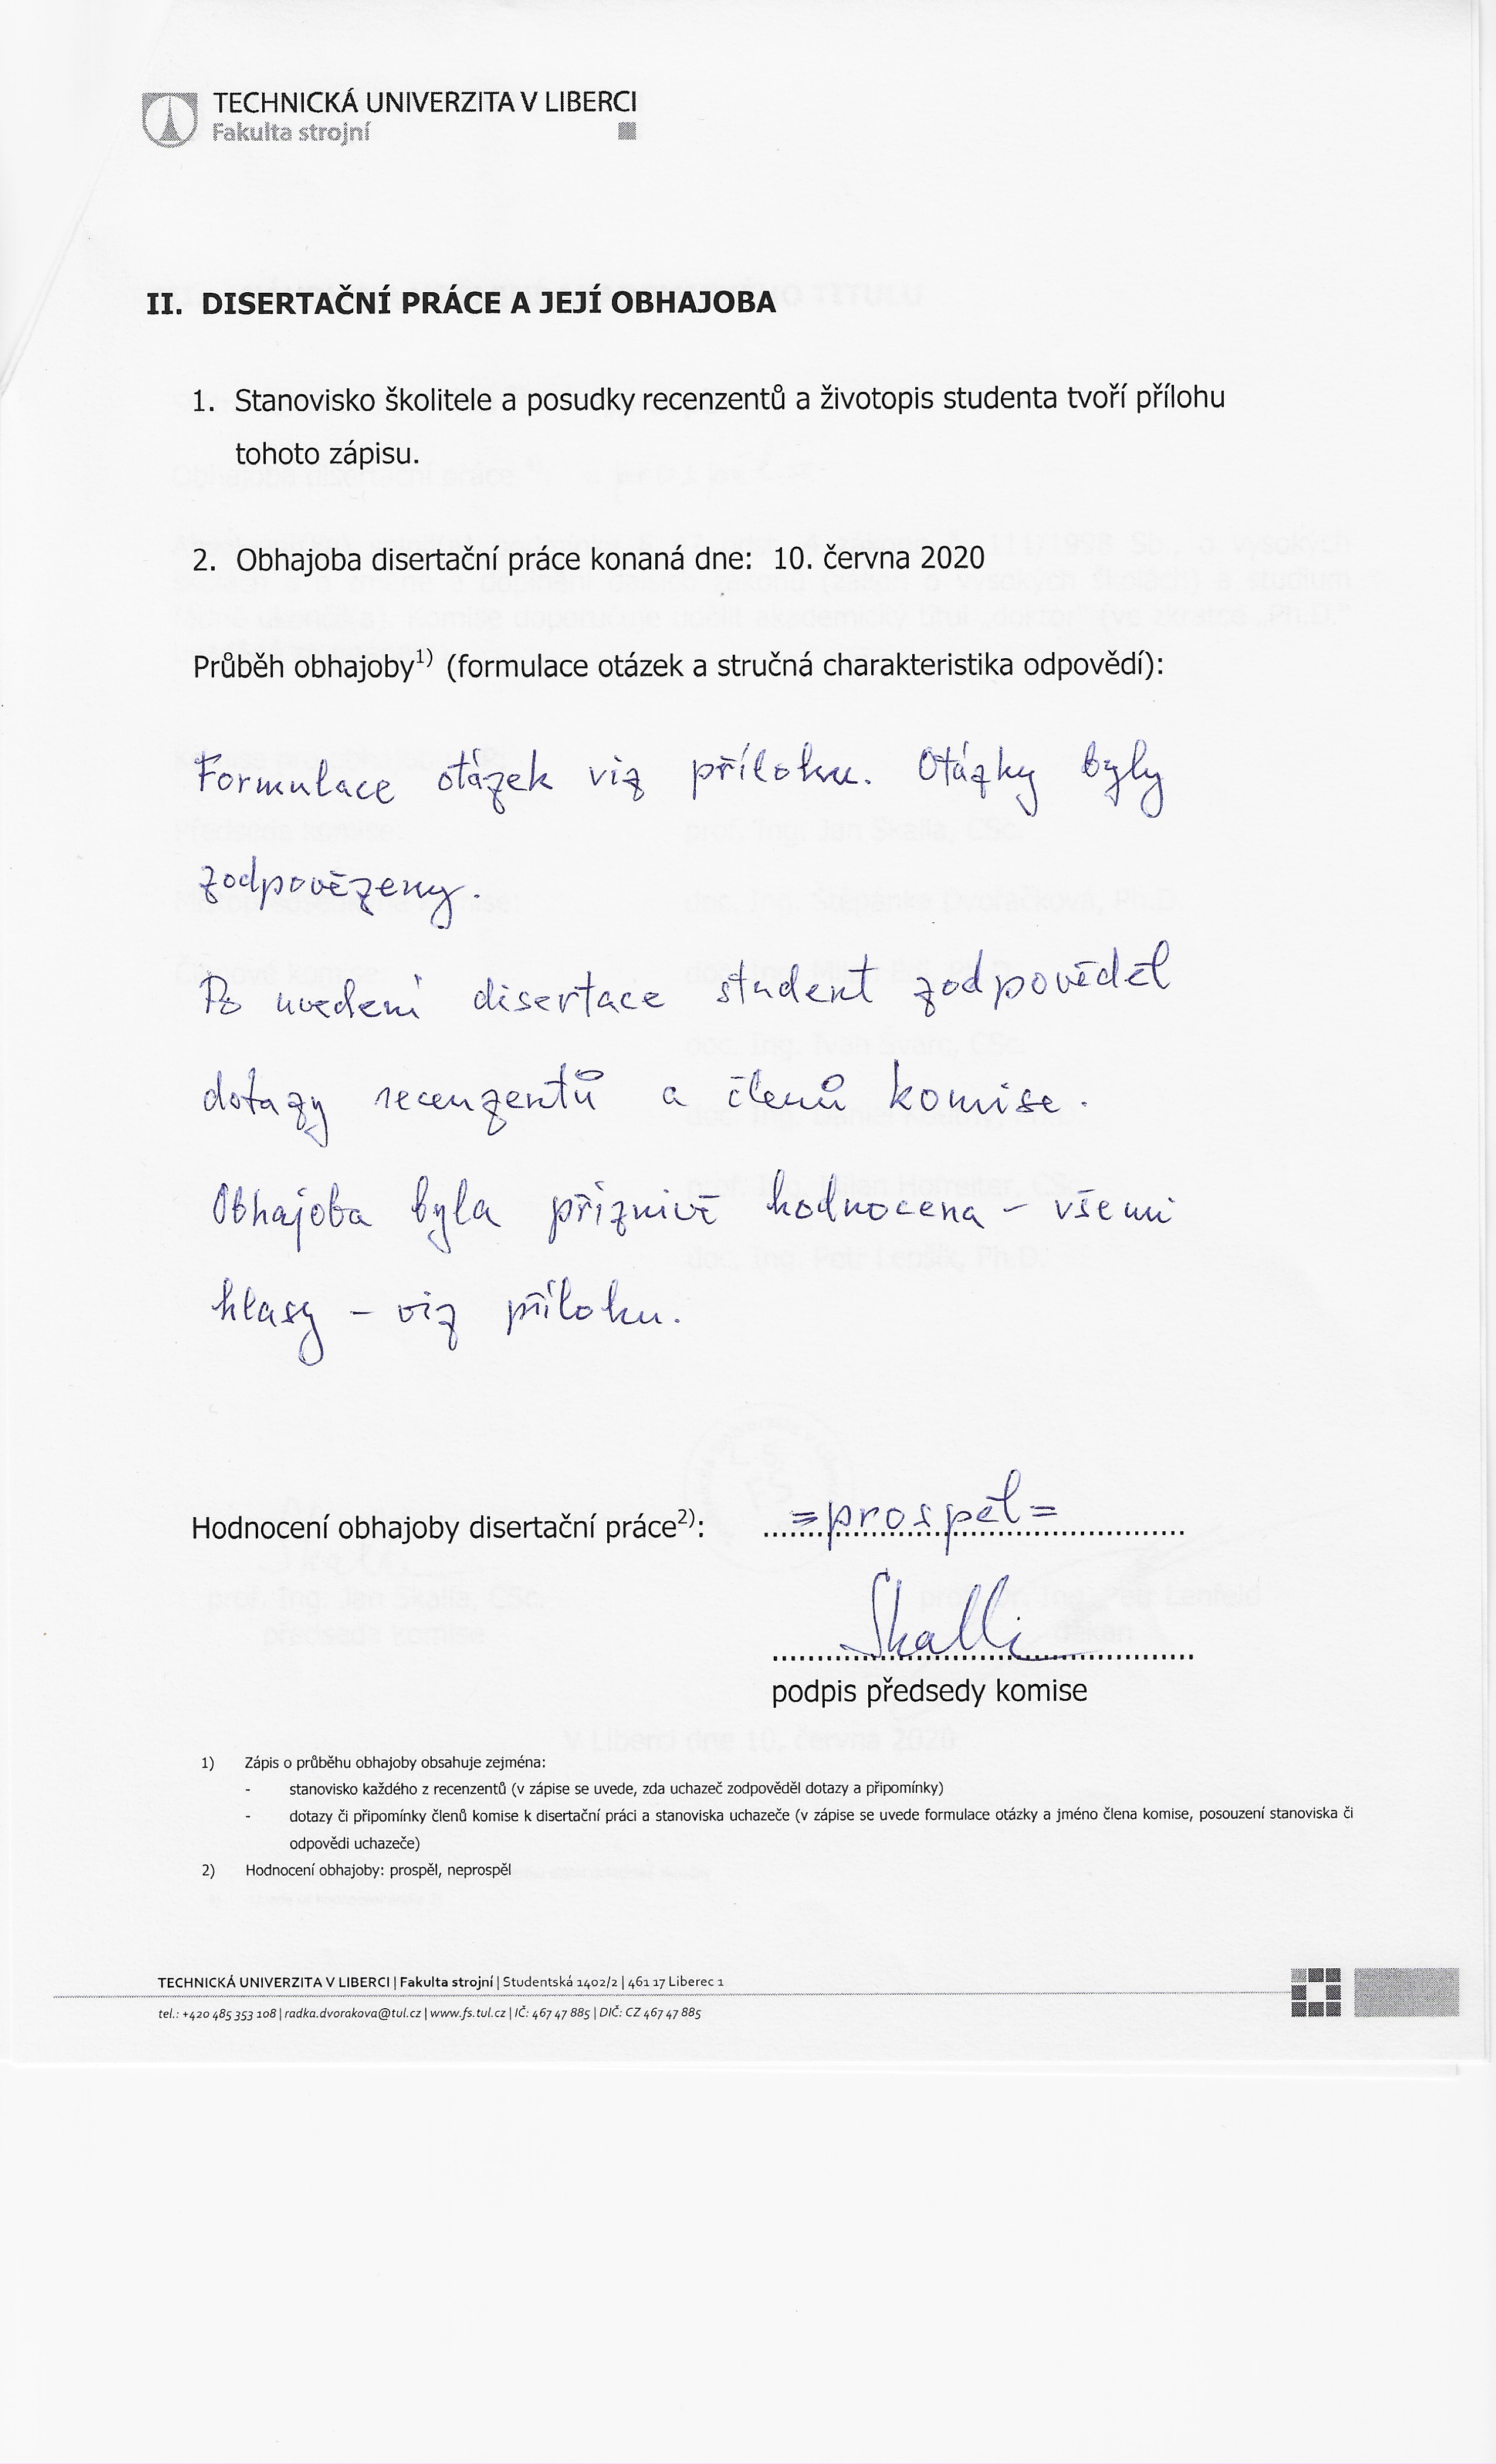 TECHNICKÁ UNIVERZITA V LIBERCI
Fakulta strojní
II. DISERTAČNÍ PRÁCE A JEJÍ OBHAJOBA
1. Stanovisko školitele a posudky recenzentů a životopis studenta tvoří přílohu
tohoto zápisu.
2. Obhajoba disertační práce konaná dne: 10. června 2020
Průběh obhajoby1) (formulace otázek a stručná charakteristika odpovědí):
Formulace otázek viz přílohu. Otázky byly
zodpovězeny.
Po uvedení disertace student zodpověděl
dotazy recenzentů a členů komise.
Obhajoba byla příznivě hodnocena – všemi
hlasy – viz přílohu.
Hodnocení obhajoby disertační práce2): =prospěl=
Skalla
podpis předsedy komise
V Liberci dne 10. června 2020
1) Zápis o průběhu obhajoby obsahuje zejména:
- stanovisko každého z recenzentů (v zápise se uvede, zda uchazeč zodpověděl dotazy a připomínky)
- dotazy či připomínky členů komise k disertační práci a stanoviska uchazeče (v zápise se uvede formulace otázky a jméno člena komise, posouzení stanoviska či
odpovědi uchazeče)
2) Hodnocení obhajoby: prospěl, neprospěl
TECHNICKÁ UNIVERZITA V LIBERCI | Fakulta strojní | Studentská 1402/2 | 461 17 Liberec 1
tel.: +420 485 353 108 | radka.dvorakova@tul.cz | www.fs.tul.cz | IČ: 467 47 885 | DIČ: CZ 467 47 885